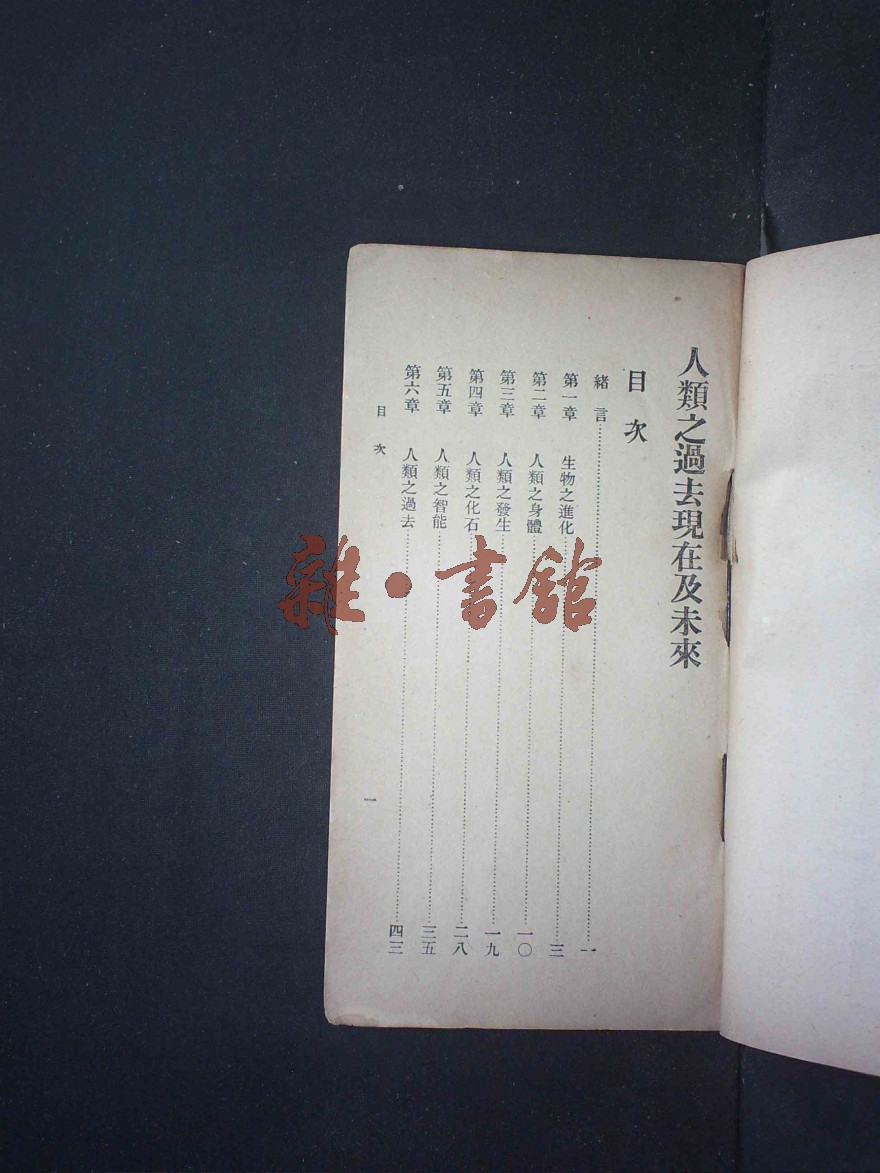 人類之過去現在及未來
目次
緒言…………一
第一章 生物之進化…………三
第二章 人類之身體…………一〇
第三章 人類之發生…………一九
第四章 人類之化石…………二八
第五章 人類之智能…………三五
第六章 人類之過去…………四三
目次
一
雜·書館